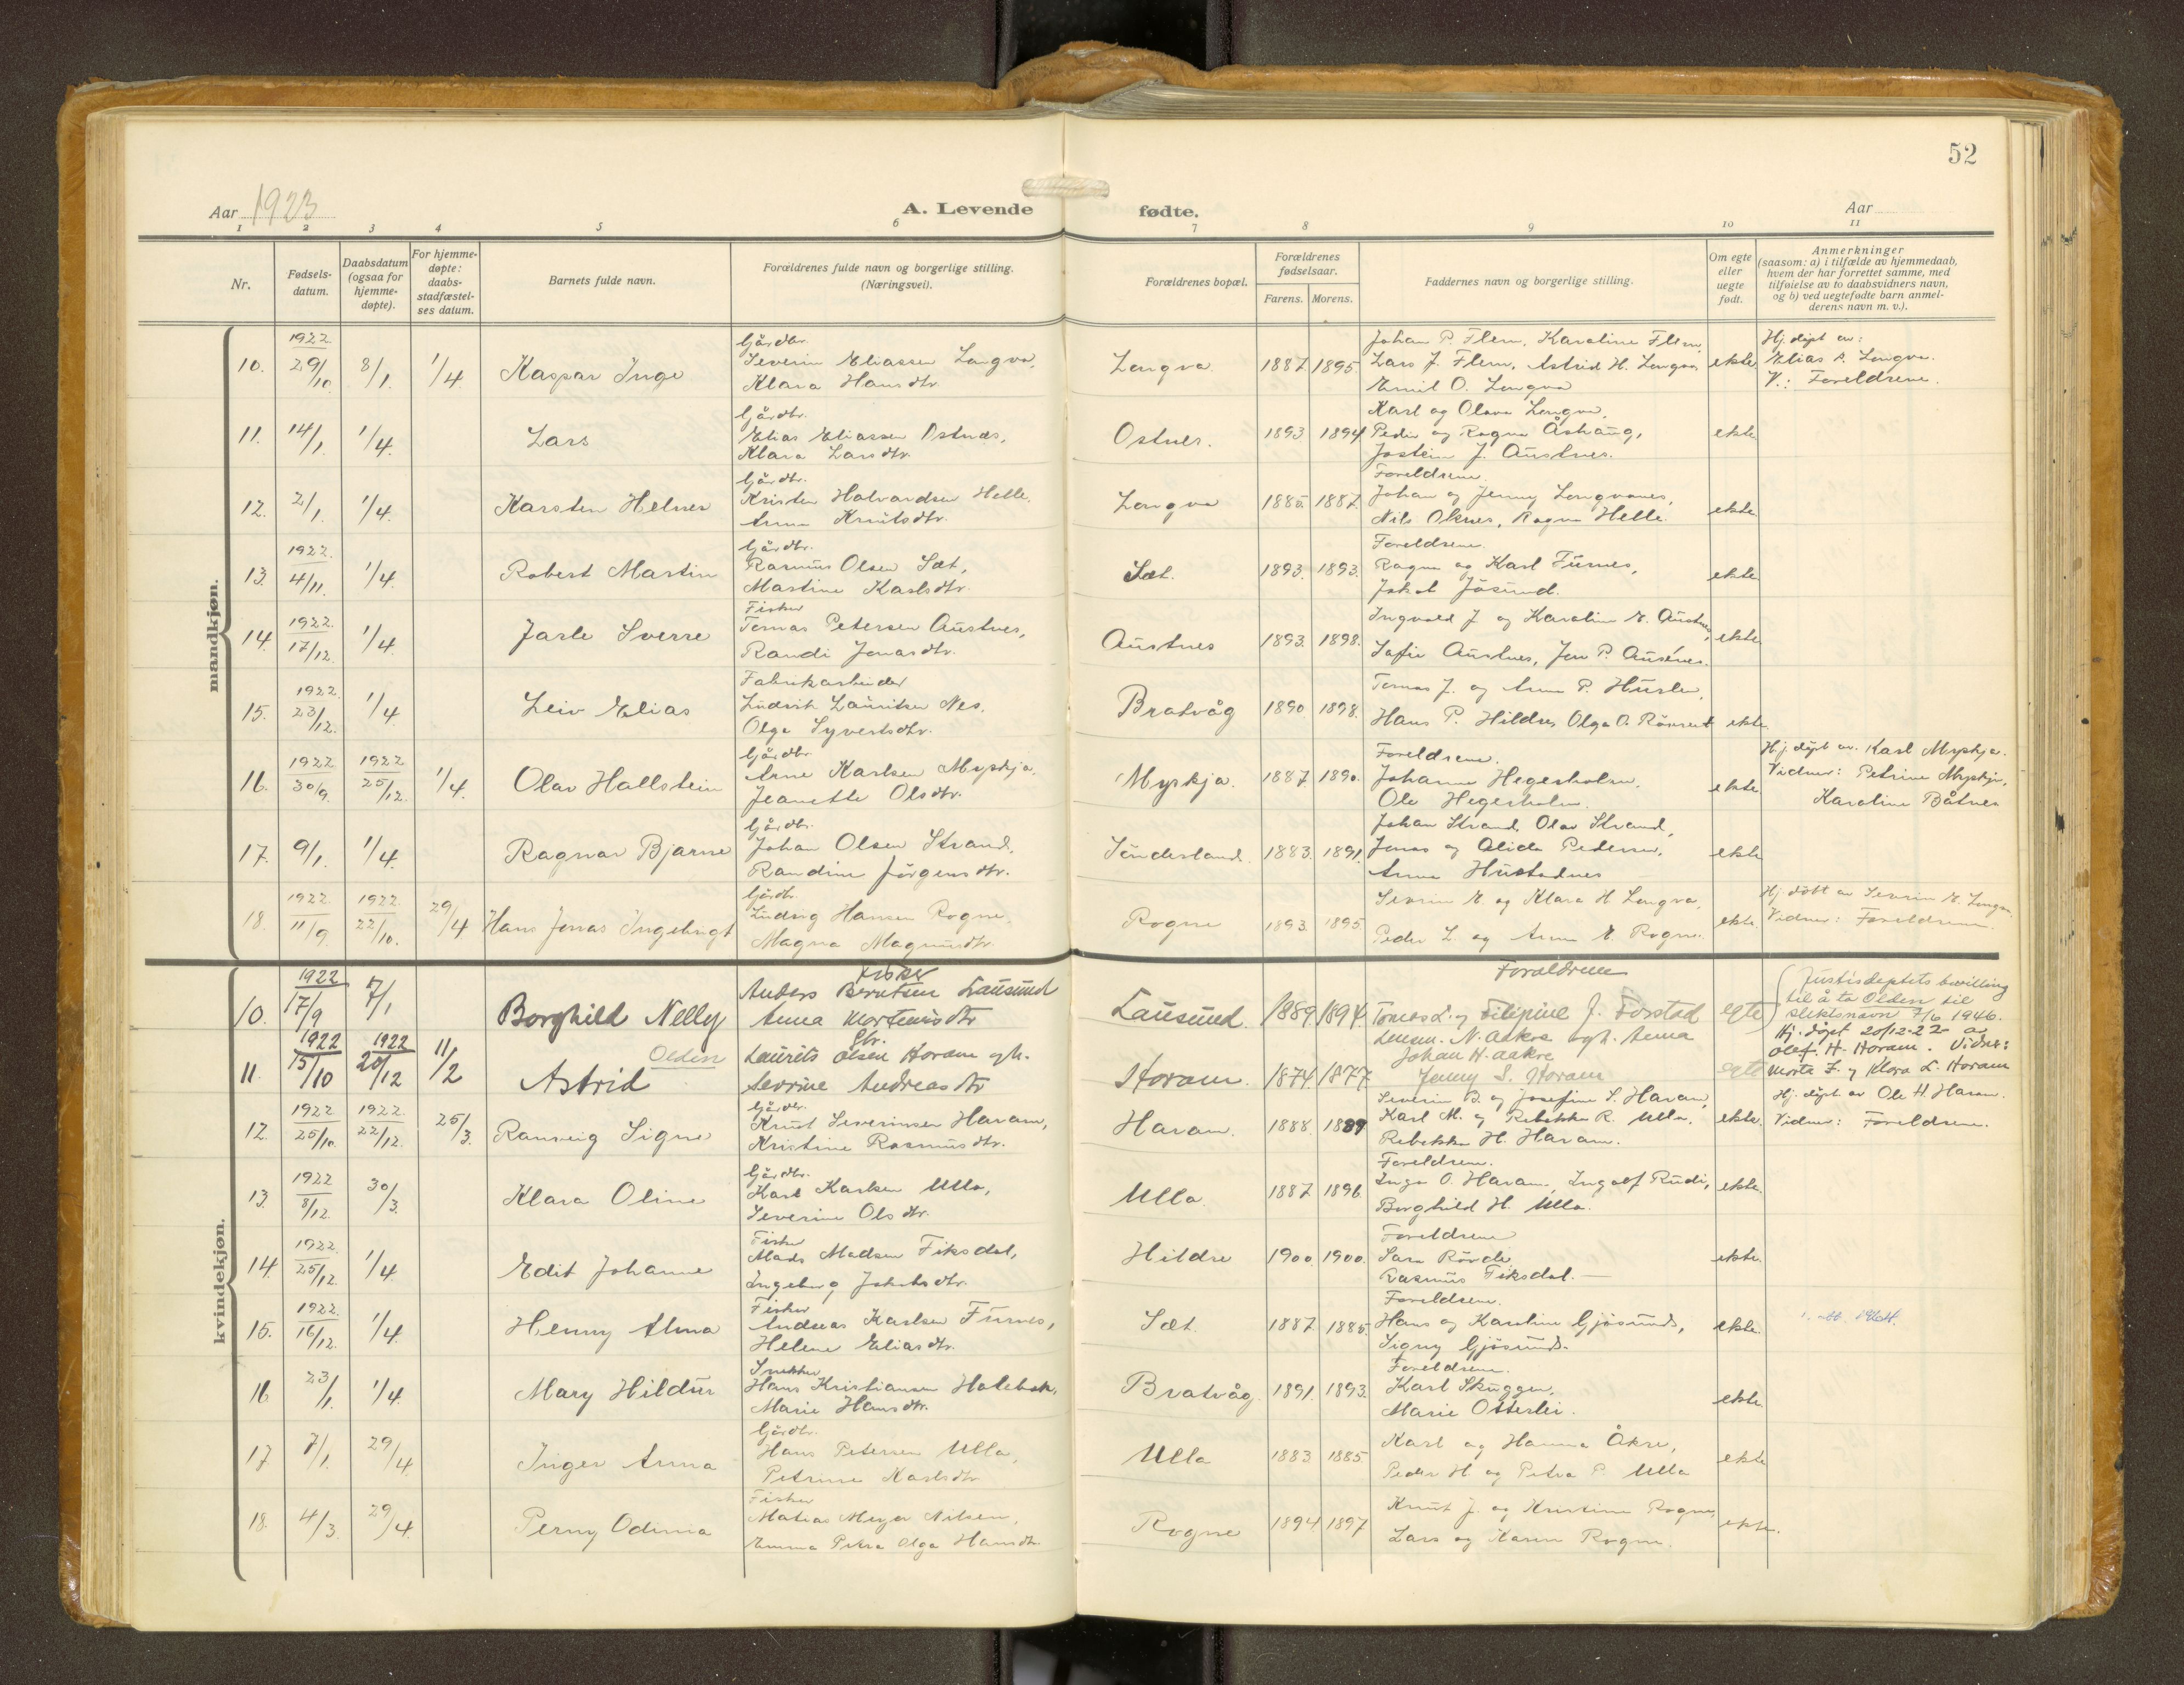 52
Aar 1923
A. Levende fødte.
Aar
1 2 3 4 5 6 7 8 9 10 11
Nr.
Fødsels-
datum.
Daabsdatum
(ogsaa for
hjemme-
døpte).
For hjemme-
døpte:
daabs-
stadfæstel-
ses datum.
Barnets fulde navn.
Forældrenes fulde navn og borgerlige stilling.
(Næringsvei).
Forældrenes bopæl.
Forældrenes
fødselsaar.
Farens. Morens.
Faddernes navn og borgerlige stilling.
Om egte
eller
uegte
født.
Anmerkninger
(saasom: a) i tilfælde av hjemmedaab,
hvem der har forrettet samme, med
tilføielse av to daabsvidners navn,
og b) ved uegtefødte barn anmel-
derens navn m. v.).
mandkjøn.
10. 1922 29/10 8/1. 1/4 Kaspar Inge
Gårdbr.
Severin Eliassen Longva,
Klara Hansdtr.
Longva 1887 1895
Johan P. Flem, Karoline Flem,
Lars J. Flem, Astrid H. Longva,
Emil O. Longva
ekte
Hj. døpt av:
Elias P. Longva.
V.: Foreldrene.
11. 14/1. 1/4. Lars
Gårdbr.
Elias Eliassen Ostnes,
Klara Larsdtr.
Ostnes. 1893 1894
Karl og Olava Longva,
Peder og Ragna Åshaug,
Jostein J. Austnes.
ekte
12. 2/1. 1/4. Karsten Helner
Gårdbr.
Kristen Halvardsen Helle,
Anna Knutsdtr.
Longva 1885 1887
Foreldrene.
Johan og Jenny Longvanes,
Nils Oknes, Ragna Helle.
ekte
13. 1922. 4/11. 1/4. Robert Martin
Gårdbr.
Rasmus Olsen Sæt,
Martine Karlsdtr.
Sæt. 1893. 1893.
Foreldrene.
Ragna og Karl Furnes,
Jakob Jøsund.
ekte
14. 1922. 17/12. 1/4. Jarle Sverre
Fisker
Tomas Petersen Austnes,
Randi Jonasdtr.
Austnes 1893. 1898.
Ingvald J. og Karoline E. Austnes,
Sofie Austnes, Jon P. Austnes.
ekte
15. 1922. 23/12. 1/4. Leiv Elias
Fabrikarbeider
Ludvik Lauritsen Nes.
Olga Syvertsdtr.
Bratvåg 1890 1898.
Tomas J. og Anna P. Huslen,
Hans P. Hildre, Olga O. Rönset
ekte.
16. 1922 30/9. 1922 25/12. 1/4. Olav Hallstein
Gårdbr.
Arne Karlsen Myskja.
Jeanette Olsdtr.
Myskja. 1887 1890.
Foreldrene.
Johanne Hegerholm,
Ole Hegerholm.
ekte
Hj. døpt av. Karl Myskja.
Vidner: Petrine Myskja,
Karoline Båtnes
17. 9/1. 1/4. Ragnar Bjarne
Gårdbr.
Johan Olsen Strand,
Randine Jörgensdtr.
Sönderland. 1883. 1891.
Johan Strand, Olav Strand,
Jonas og Alida Pedersen,
Anna Hustadnes
ekte
18. 1922. 11/9. 1922. 22/10. 29/4 Hans Jonas Ingebrigt
Gårdbr.
Ludvig Hansen Rogne.
Magna Magnusdtr.
Rogne 1893. 1895.
Severin E. og Klara H. Longva,
Peder L. og Anna E. Rogne.
ekte.
Hj. døbt av Severin E. Longva.
Vidner: Foreldrene.
kvindekjøn.
10. 1922 17/9 7/1 Borghild Nelly
Fisker
Anders Berntsen Lausund
Anna Mortensdtr
Lausund. 1889. 1894.
Forældrene
Tomas L. og Filipine J. Forstad
egte
Justisdeptets bevilling
til å ta Olden til
slektsnavn 7/6 1946.
11. 1922 15/10 1922 20/12 11/2 Astrid Olden
Gbr.
Laurits Olsen Horam gh.
Sevrine Andreasdtr
Horam. 1874 1877
Lensm. N. Aakre og h. Anna
Johan H. Aakre
Jenny S. Horam
egte
Hj. døpt 20/12-22 av
Olef. H. Horam. Vidner:
Marta L. og Klara L. Horam
12. 1922. 25/10. 1922. 22/12. 25/3. Ranveig Signe
Gårdbr.
Knut Severinsen Haram,
Kristine Rasmusdtr.
Haram. 1888. 1889
Severin B. og Josefine S. Haram,
Karl M. og Rebekka R. Ulla,
Rebekka H. Haram.
ekte.
Hj. døpt av Ole H. Haram.
Vidner: Foreldrene.
13. 1922 8/12. 30/3. Klara Oline
Gårdbr.
Karl Karlsen Ulla,
Severine Olsdtr.
Ulla. 1887 1896.
Foreldrene.
Inga O. Haram, Ingolf Rudi,
Borghild H. Ulla.
ekte.
14. 1922. 25/12. 1/4. Edit Johanne
Fisker
Mads Madsen Fiksdal,
Ingeborg Jakobsdtr.
Hildre 1900. 1900.
Foreldrene
Sara Røvde,
Rasmus Fiksdal.
ekte.
15. 1922. 16/12. 1/4. Henny Alma
Fisker
Andreas Karlsen Furnes,
Helene Eliasdtr.
Sæt 1887. 1885.
Foreldrene.
Hans og Karoline Gjösund,
Signy Gjösund.
ekte.
16. 23/1. 1/4. Mary Hildur
Snekker
Hans Kristiansen Holebek,
Marie Hansdtr.
Bratvåg. 1891. 1893.
Foreldrene.
Karl Skuggen,
Marie Otterlei.
ekte.
17. 7/1. 29/4. Inger Anna
Gårdbr.
Hans Petersen Ulla,
Petrine Karlsdtr.
Ulla 1883 1885.
Karl og Hanna Åkre,
Peder H. og Petra P. Ulla
ekte
18. 4/3. 29/4. Perny Odinia
Fisker
Matias Meyer Nilsen,
Emma Petra Olga Hansdtr.
Rogne 1894 1897
Knut J. og Kristine Rogne,
Lars og Karen Rogne.
ekte.